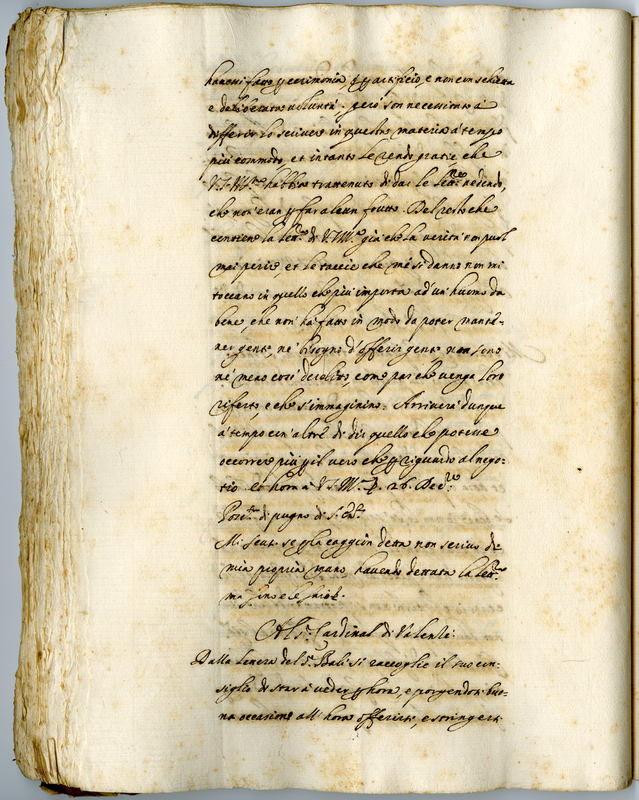 havessi fatto p cerimonia, et p artificio, e non con schietta
e deliberata volontà. però son necessitato à
differir lo scriver in questa materia à tempo
più commodo, et intanto le rendo gratie che
V.S. Ill.ma habbia trattenuto di dar le lett.re vedendo,
che non eran p far alcun frutto. Del resto che
contiene la lett.ra di V.S. Ill.ma già che la verità non può
mai perire, et le taccie che mi si danno non mi
toccano in quello che più importa ad un' huomo da
bene, che non hà fatto in modo da poter mante-
ner gente, nè bisogno d'offerir gente non sono
nè meno così derelitto, come par che venga loro
riferto, e che s'immaginino. Arriverà dunque
à tempo con altre di dir quello che potesse
occorrer più p il vero che p riguardo al nego-
tio et hora à V.S. Ill.ma 26. Dec.re
Post.ta di pugno di S. Em.
Mi scusi se p la caggion detta non scrivo di
mia propria mano havendo dettata la lett.ra
ma sino e le
Al S.r Cardinal di Valenza:
Dalla lettera del S.r Bali si raccoglie il suo con-
siglio di star à veder p hora, e porgendosi buo-
na occasione all' hora offerirsi, e stringersi